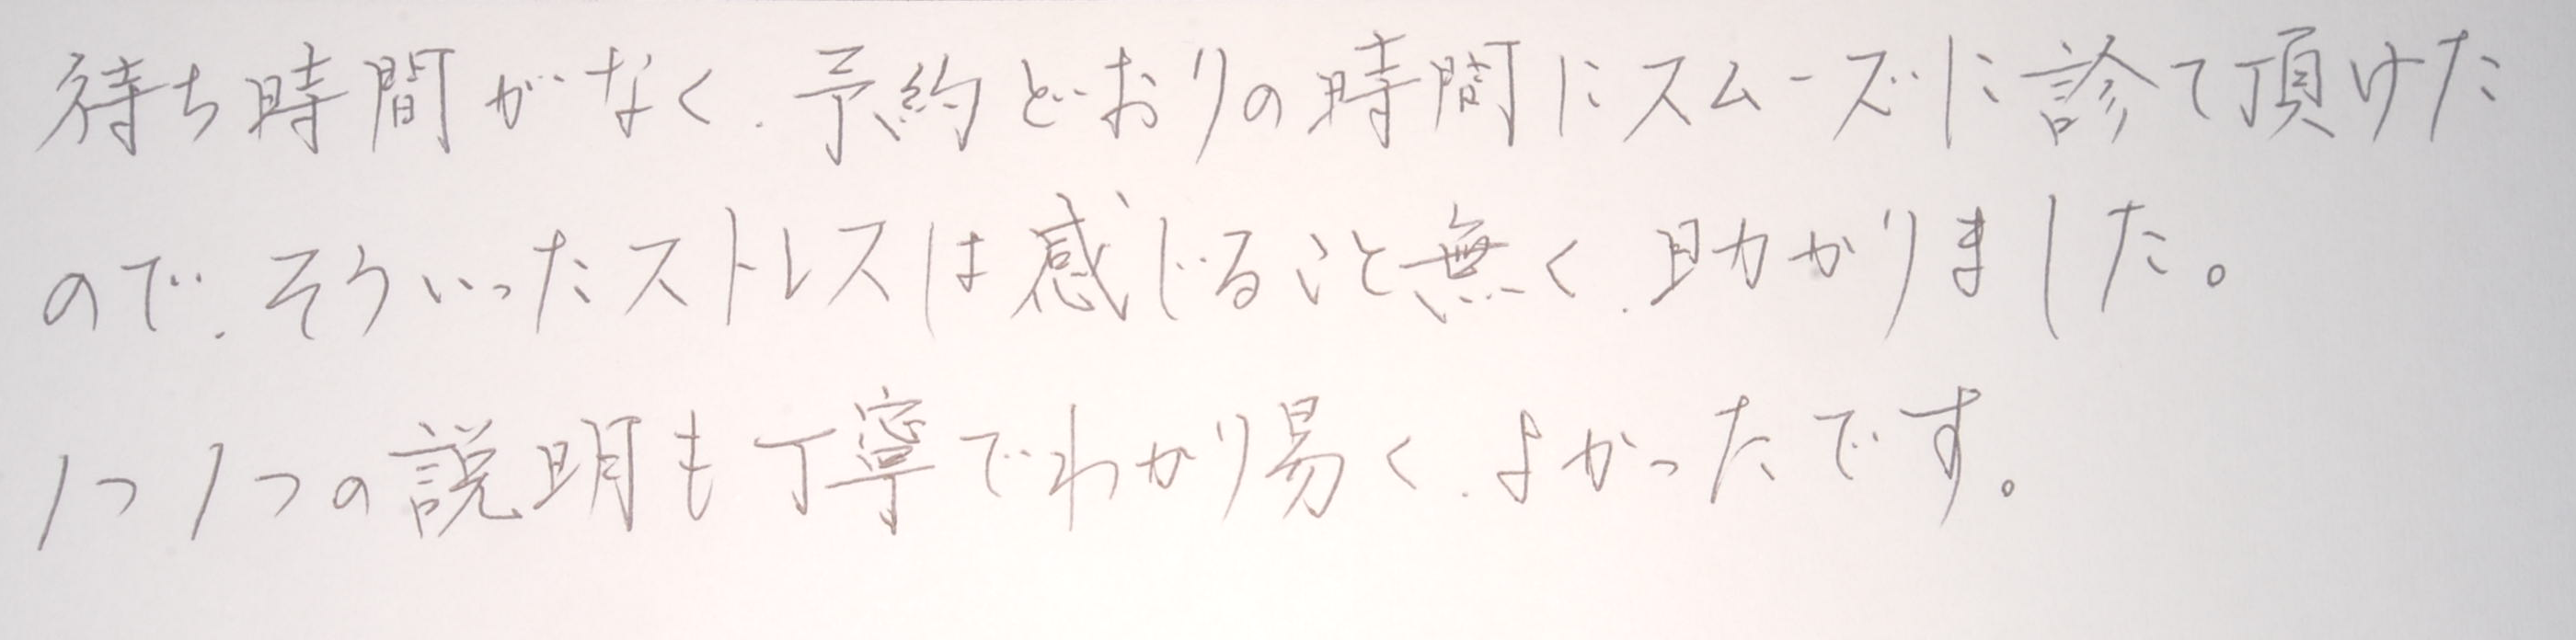 待ち時間がなく、予約どおりの時間にスムーズに診て頂けた
ので、そういったストレスは感じること無く、助かりました。
1つ1つの説明も丁寧でわかり易く、よかったです。